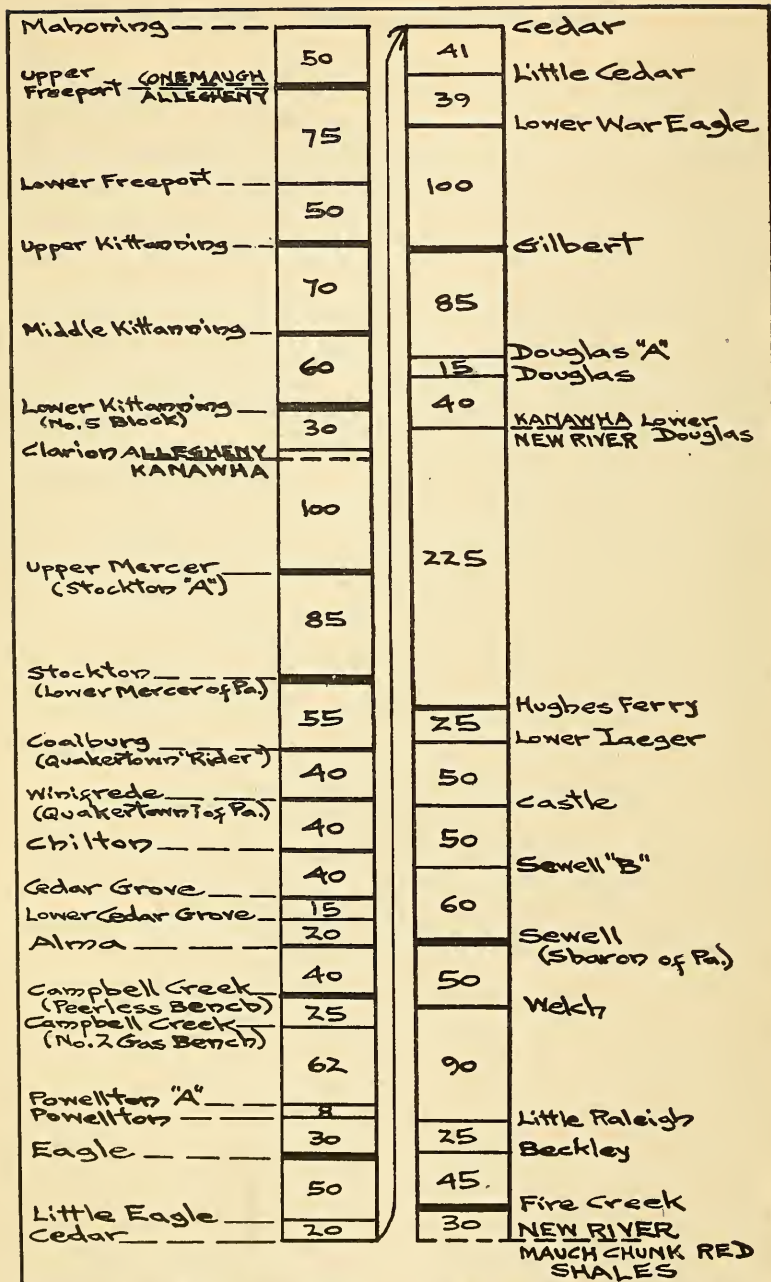 Mahoning
50
Upper
Freeport CONEMAUGH
ALLEGHENY
75
Lower Freeport
50
Upper Kittanning
70
Middle Kittanning
60
Lower Kittanning
(No. 5 Block)
30
Clarion ALLEGHENY
KANAWHA
100
Upper Mercer
(Stockton "A")
85
Stockton
(Lower Mercer of Pa.)
55
Coalburg
(Quakertown "Rider")
40
Winifrede
(Quakertown of Pa.)
40
Chilton
40
Cedar Grove
15
Lower Cedar Grove
20
Alma
40
Campbell Creek
(Peerless Bench)
25
Campbell Creek
(No. 2 Gas Bench)
62
Powellton "A"
8
Powellton
30
Eagle
50
Little Eagle
20
Cedar
Cedar
41
Little Cedar
39
Lower War Eagle
100
Gilbert
85
Douglas "A"
15
Douglas
40
KANAWHA Lower
NEW RIVER Douglas
225
Hughes Ferry
25
Lower Iaeger
50
Castle
50
Sewell "B"
60
Sewell
(Sharon of Pa.)
50
Welch
90
Little Raleigh
25
Beckley
45
Fire Creek
30
NEW RIVER
MAUCH CHUNK RED
SHALES